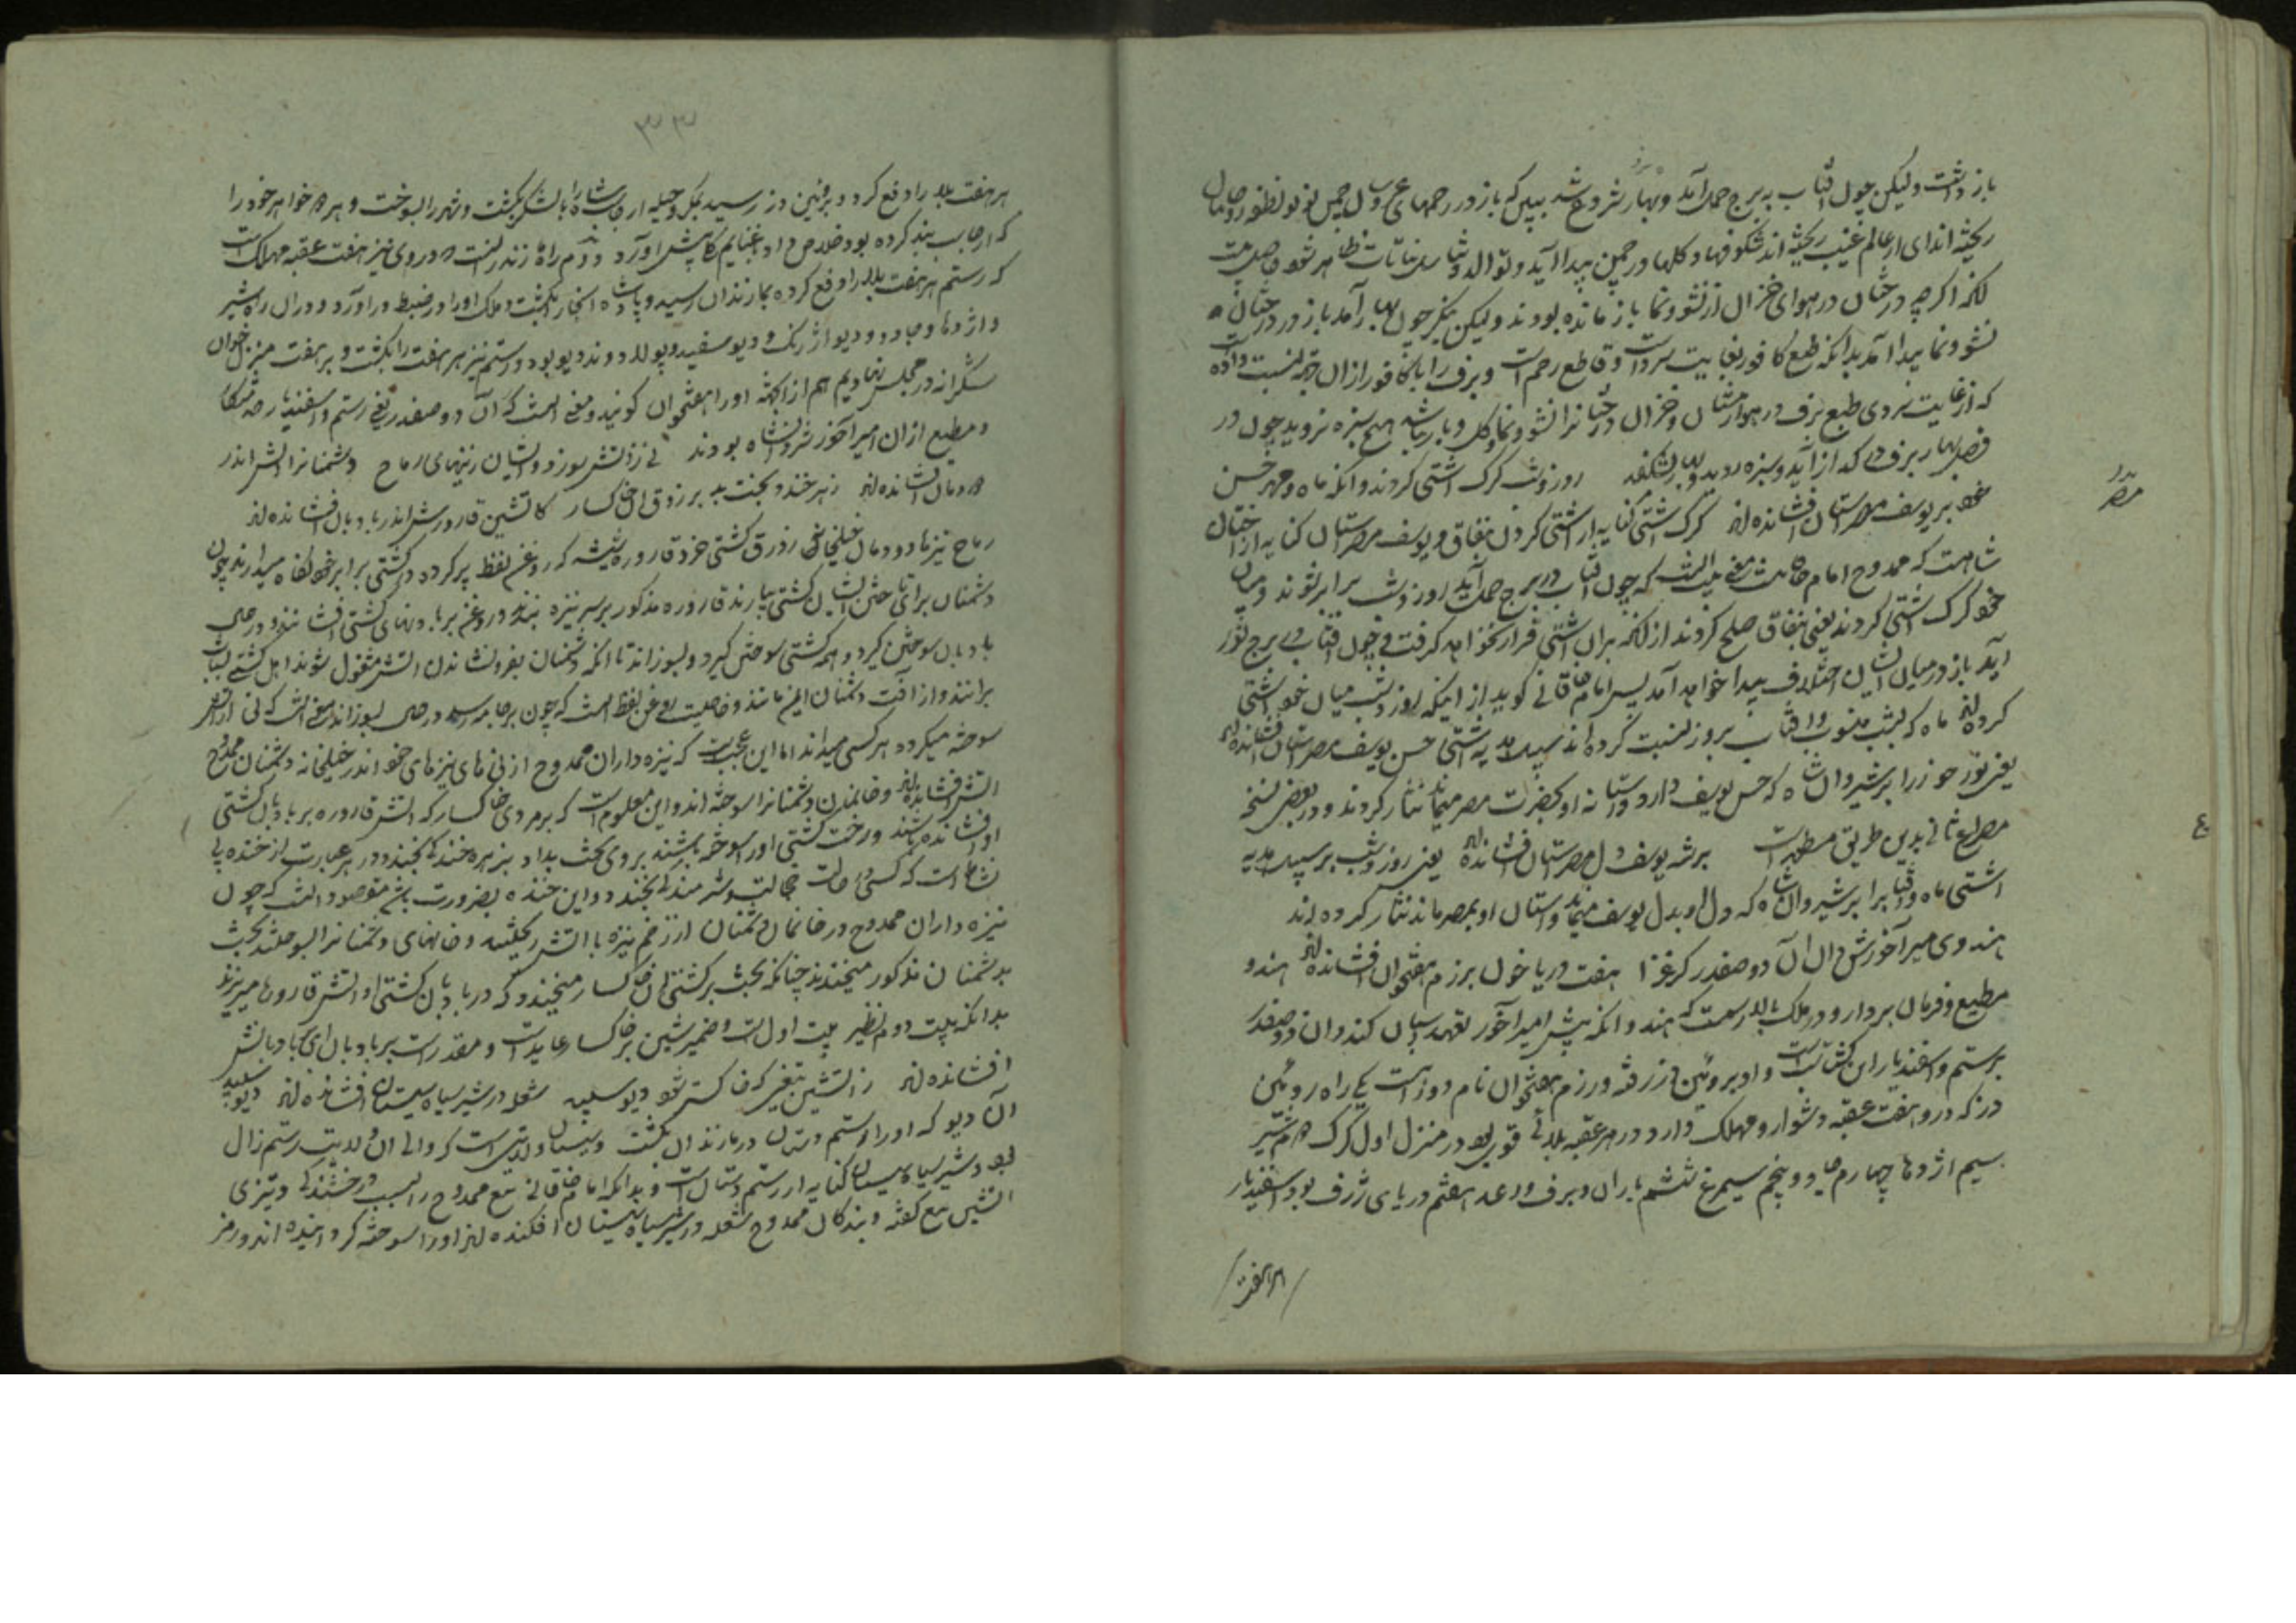 باز داشت و لیکن چون آفتاب به برج حمل آمد و بهار شروع شد ببین که باز در رحمهای عروسان چمن نو نو نطفه روحانیان
ریخته اند ای از عالم غیب ریخته اند شکوفها و کلها در چمن پیدا آید و توالد و تناسل نباتات ظاهر شود حاصل بیت
آنکه اکرچه درختان در هوای خزان از نشو و نما باز مانده بودند و لیکن بنکر چون بهار آمد باز در درختان
نشو و نما پیدا آمد بدانکه طبع کافور بغایت سردست و قاطع رحم است و برف را با کافور ازان جهة نسبت داده
که از غایت سردی طبع برف در هوا زمستان و خزان درختانرا نشو و نما و کل و بار نباشد هیچ سبزه نروید چون در
فصل بهار برف در کداز آید و سبزه روید و بهار بشکفد روز و شب کرک آشتی کردند و آنکه ماه و مهر حسن
خود بر یوسف مصراستان افشانده اند کرک آشتی کنایه از آشتی کردن بنفاق و یوسف مصراستان کنایه از اخستان
شاهست که ممدوح امام خاقانیست معنی بیت آنست که چون آفتاب در برج حمل آید روز و شب برابر شوند و میان
خود کرک آشتی کردند یعنی بنفاق صلح کردند از آنکه بران آشتی قرار نخواهد کرفت و چون آفتاب در برج ثور
آید باز در میان ایشان اختلاف پیدا خواهد آمد پس امام خاقانی کوید از اینکه روز و شب میان خود آشتی
کرده اند ماه که بشب منسوب و آفتاب بروز نسبت کرده اند سپید مهره آشتی حسن یوسف مصراستان افشانده اند
یعنی نور خود را بر شیروان شاه که حسن یوسف دارد و آستانه او بحضرت مصر میماند نثار کردند و در بعضی نسخ
مصراع ثانی بدین طریق مسطورست بر شه یوسف دل مصراستان افشانده اند یعنی روز و شب بر سپید مهره
آشتی ماه و آفتاب را بر شیروان شاه که دل او بدل یوسف میماند و آستان او بمصر ماند نثار کرده اند
هندوی میر آخورش دان آن دو صفدر کز غزا هفت دریا خون برزم هفتخوان افشانده اند هندو
مطیع و فرمان بردار و در ملک بالا رسمست که هندوانکه پیش امیرآخور تعهد اسپان کنند و ان دو صفدر
رستم و اسفندیار ابن کشتاسپ است و او بروئین دز رفته و رزم هفتخوان نام دو راه است یکی راه روئین
دز که درو هفت عقبه دشوار و مهلک دارد و در هر عقبه بلائی قوی بود در منزل اول کرک دوم شیر
سیم اژدها چهارم جادو پنجم سیمرغ ششم باران و برف و رعد هفتم دریای ژرف بود اسفندیار
هر هفت
مصر
ع
۳۳
هر هفت بلا را دفع کرد و در روئین دز رسید بمکر و حیله ارجاسپ شاه را با لشکر بکشت و شهر را بسوخت و هر دو خواهر خود را
که ارجاسپ بند کرده بود خلاص داد و غنایم کا پیش آورد دوم راه مازندرانست و در وی نیز هفت عقبه مهلک است
که رستم هر هفت بلا را دفع کرده بمازندران رسید و پادشاه آنجا را بکشت و ملک او را در ضبط در آورد و دران راه شیر
و اژدها و جادو و دیو ارژنک و دیو سفید و پولادوند دیو بود و رستم نیز هر هفت را بکشت و بر هفت منزل خوان
شکرانه در مجلس نهادیم هم ازانجهة او را هفتخوان کویند و معنی آنست که آن دو صفدر یعنی رستم و اسفندیار خدمتکار
و مطیع ازان امیرآخور شروانشاه بودند نی ز آتش سوزد و ایشان ز نیهای رماح دشمنانرا آتش اندر
دودمان افشانده اند زهر خندد بخت بد بر زورق آن خاکسار کاتشین قاروره اندر بادبان افشانده اند
رماح نیزها و دودمان خیلخانه زورق کشتی خرد قاروره شیشه که روغن نفط پر کرده در کشتی برابر خود نکاه میدارند چون
دشمنان برای تاختن ایشان کشتی بیارند قاروره مذکور بر سر نیزه بندند و روغن بر بادبانهای کشتی افشانند و در حال
بادبان سوختن کیرد و همه کشتی سوختن کیرد و بسوزاند تا آنکه دشمنان بفرو نشاندن آتش مشغول شوند اهل کشتی بشتاب
برانند و از آفت دشمنان ایمن مانند و خاصیت روغن نفط است که چون بر جامه رسد در حال بسوزاند معنی آنست که نی از آتش
سوخته میکردد هر کسی میداند اما این عجبست که نیزه داران ممدوح از نی های نیزهای خود اندر خیلخانه دشمنان ممدوح
آتش افشانده اند و خانمان دشمنانرا سوخته اند و این معلوم است که بر مردی خاکسار که آتش قاروره بر بادبان کشتی
او افشانده باشند و رخت کشتی او را سوخته باشند بر وی بخت بد او بزهره خند کی بخندد و زهر عبارت از خنده بی
نشاط است که کسی در حالت خجالت و شرمندکی بخندد و این خنده بضرورت باشد مقصود آنست که چون
نیزه داران ممدوح در خانمان دشمنان از زخم نیزه با آتش ریختند و خانهای دشمنانرا بسوختند بخت
بد دشمنان مذکور میخندند چنانکه بخت بر کشتی آن خاکسار میخندد که در بادبان کشتی او آتش قاروره میریزند
بدانکه بیت دوم نظیر بیت اول است و ضمیر شین بر خاکسار عایدست و مقدرست بر بادبان ای که بادبانش
افشانده اند ز آتشین تیغی که خاکستر شود دیو سپید شعله در شیر سیاه سیستان افشانده اند دیو سپید
آن دیو که او را رستم دستان در مازندران بکشت و سیستان ولایتی است که والی آن ولایت رستم زال
بود و شیر سیاه سیستان کنایه از رستم دستان است و بدانکه امام خاقانی تیغ ممدوح را بسبب درخشندکی و تیزی
آتشین تیغ کفته و بندکان ممدوح شعله در شیر سیاه سیستان افکنده اند او را سوخته کردانیده اند و رمز